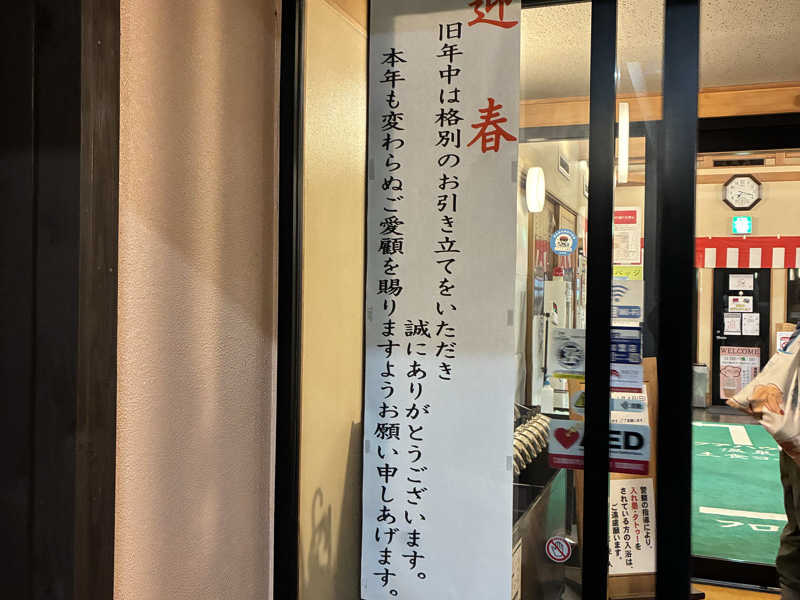 迎春
旧年中は格別のお引き立てをいただき
誠にありがとうございます。
本年も変わらぬご愛顧を賜りますようお願い申しあげます。
WELCOME
AED
警察の指導により、
入れ墨・タトゥーを
されている方の入浴は、
ご遠慮願います。
フロ